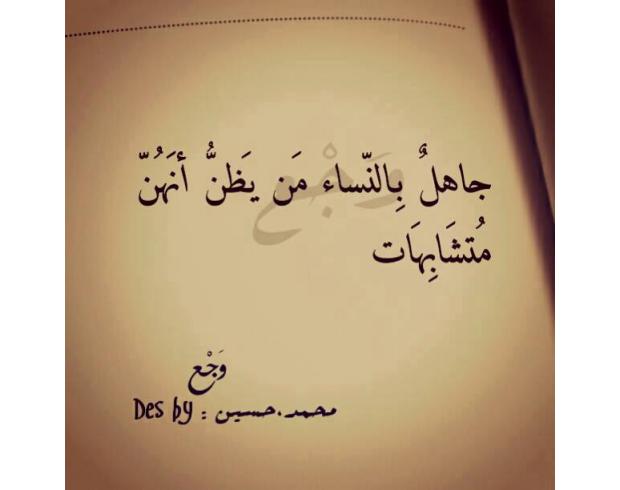 جاهلٌ بِالنّساء مَن يَظنُّ أنَهُنّ
مُتشَابِهَات
وَجْع
وَجْع
Des by : محمد.حسين